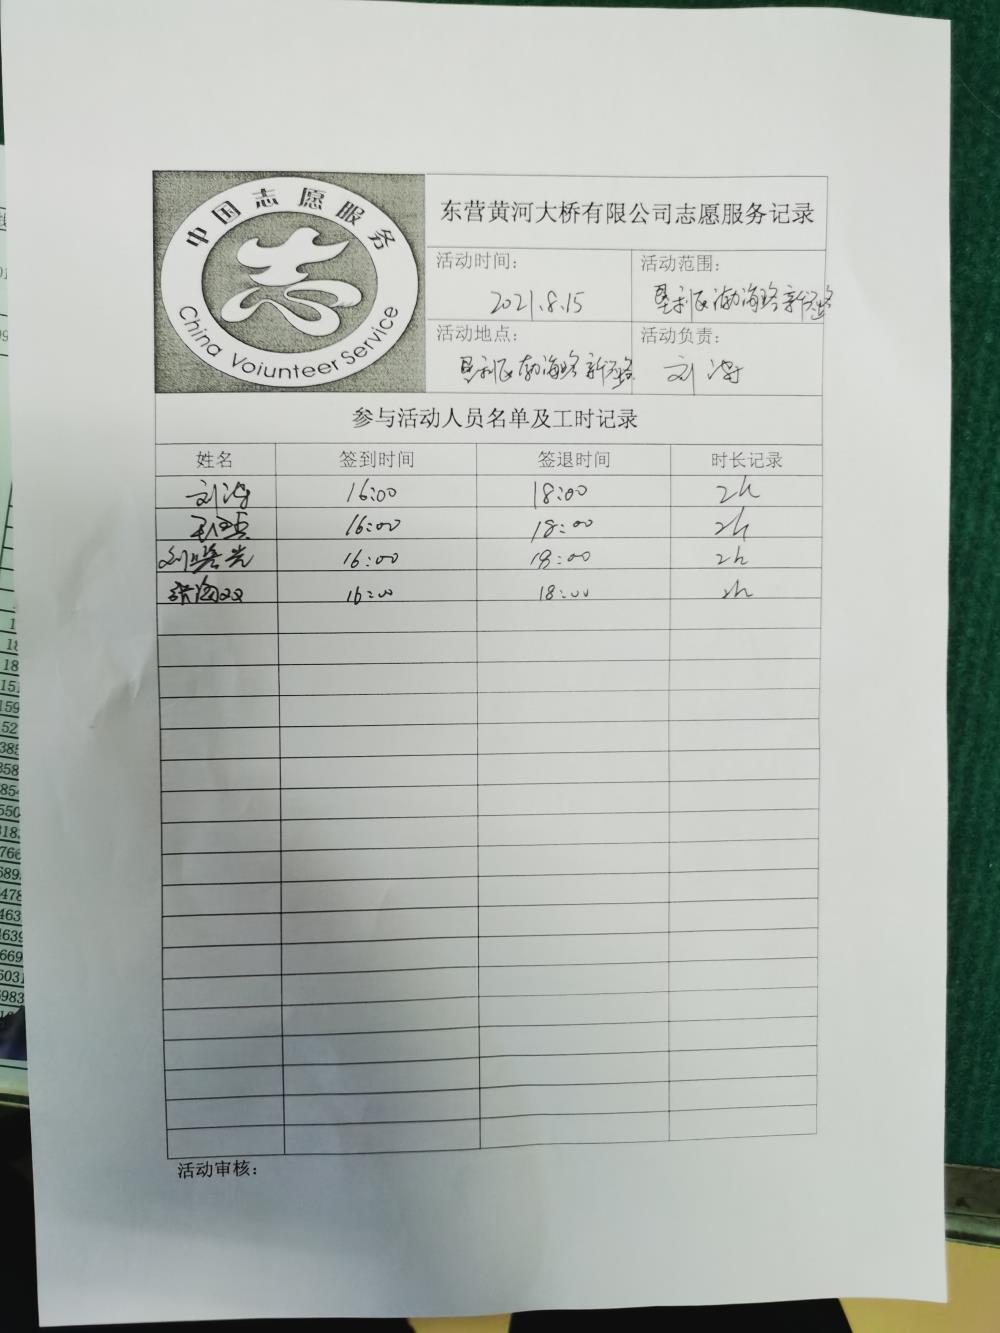 中国志愿服务
China Voiunteer Service
东营黄河大桥有限公司志愿服务记录
活动时间：
2021.8.15
活动范围：
垦利区渤海路新兴路
活动地点：
垦利区渤海路新兴路
活动负责：
刘涛
参与活动人员名单及工时记录
姓名 签到时间 签退时间 时长记录
刘涛 16:00 18:00 2h
16:00 18:00 2h
刘 光 16:00 18:00 2h
张 双 16:00 18:00 2h
活动审核：